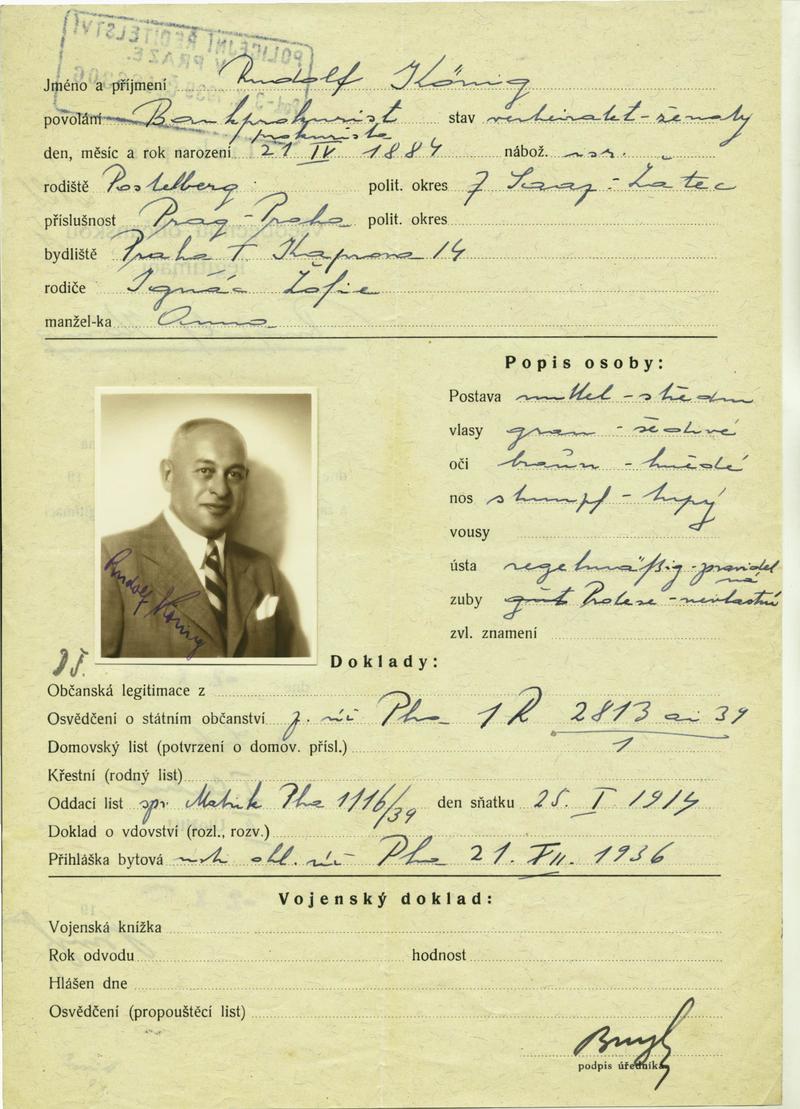 POLICEJNÍ ŘEDITELSTVÍ
V PRAZE.
Jméno a příjmení Rudolf König
povolání Bankprokurist stav verheiratet - ženatý
prokurista
den, měsíc a rok narození 21 IV 1884 nábož. isr.
rodiště Postelberg polit. okres Saaz - Žatec
příslušnost Prag - Praha polit. okres
bydliště Praha I Kaprova 14
rodiče Ignác Žofie
manžel-ka Anna
Popis osoby:
Postava mittel - střední
vlasy grau - šedivé
oči braun - hnědé
nos stumpf - tupý
vousy
ústa regelmäßig - pravidel
ná
zuby gut Protese - nevlastní
zvl. znamení
Rudolf König
Doklady:
Občanská legitimace z
Osvědčení o státním občanství z. úř Pha 1 R 2813 ai 39
1
Domovský list (potvrzení o domov. přísl.)
Křestní (rodný list)
Oddací list Matrik Pha 1116/39 den sňatku 25. I 1914
Doklad o vdovství (rozl., rozv.)
Přihláška bytová ohl. úř Pha 21. XII. 1936
Vojenský doklad:
Vojenská knížka
Rok odvodu hodnost
Hlášen dne
Osvědčení (propouštěcí list)
podpis úředníka